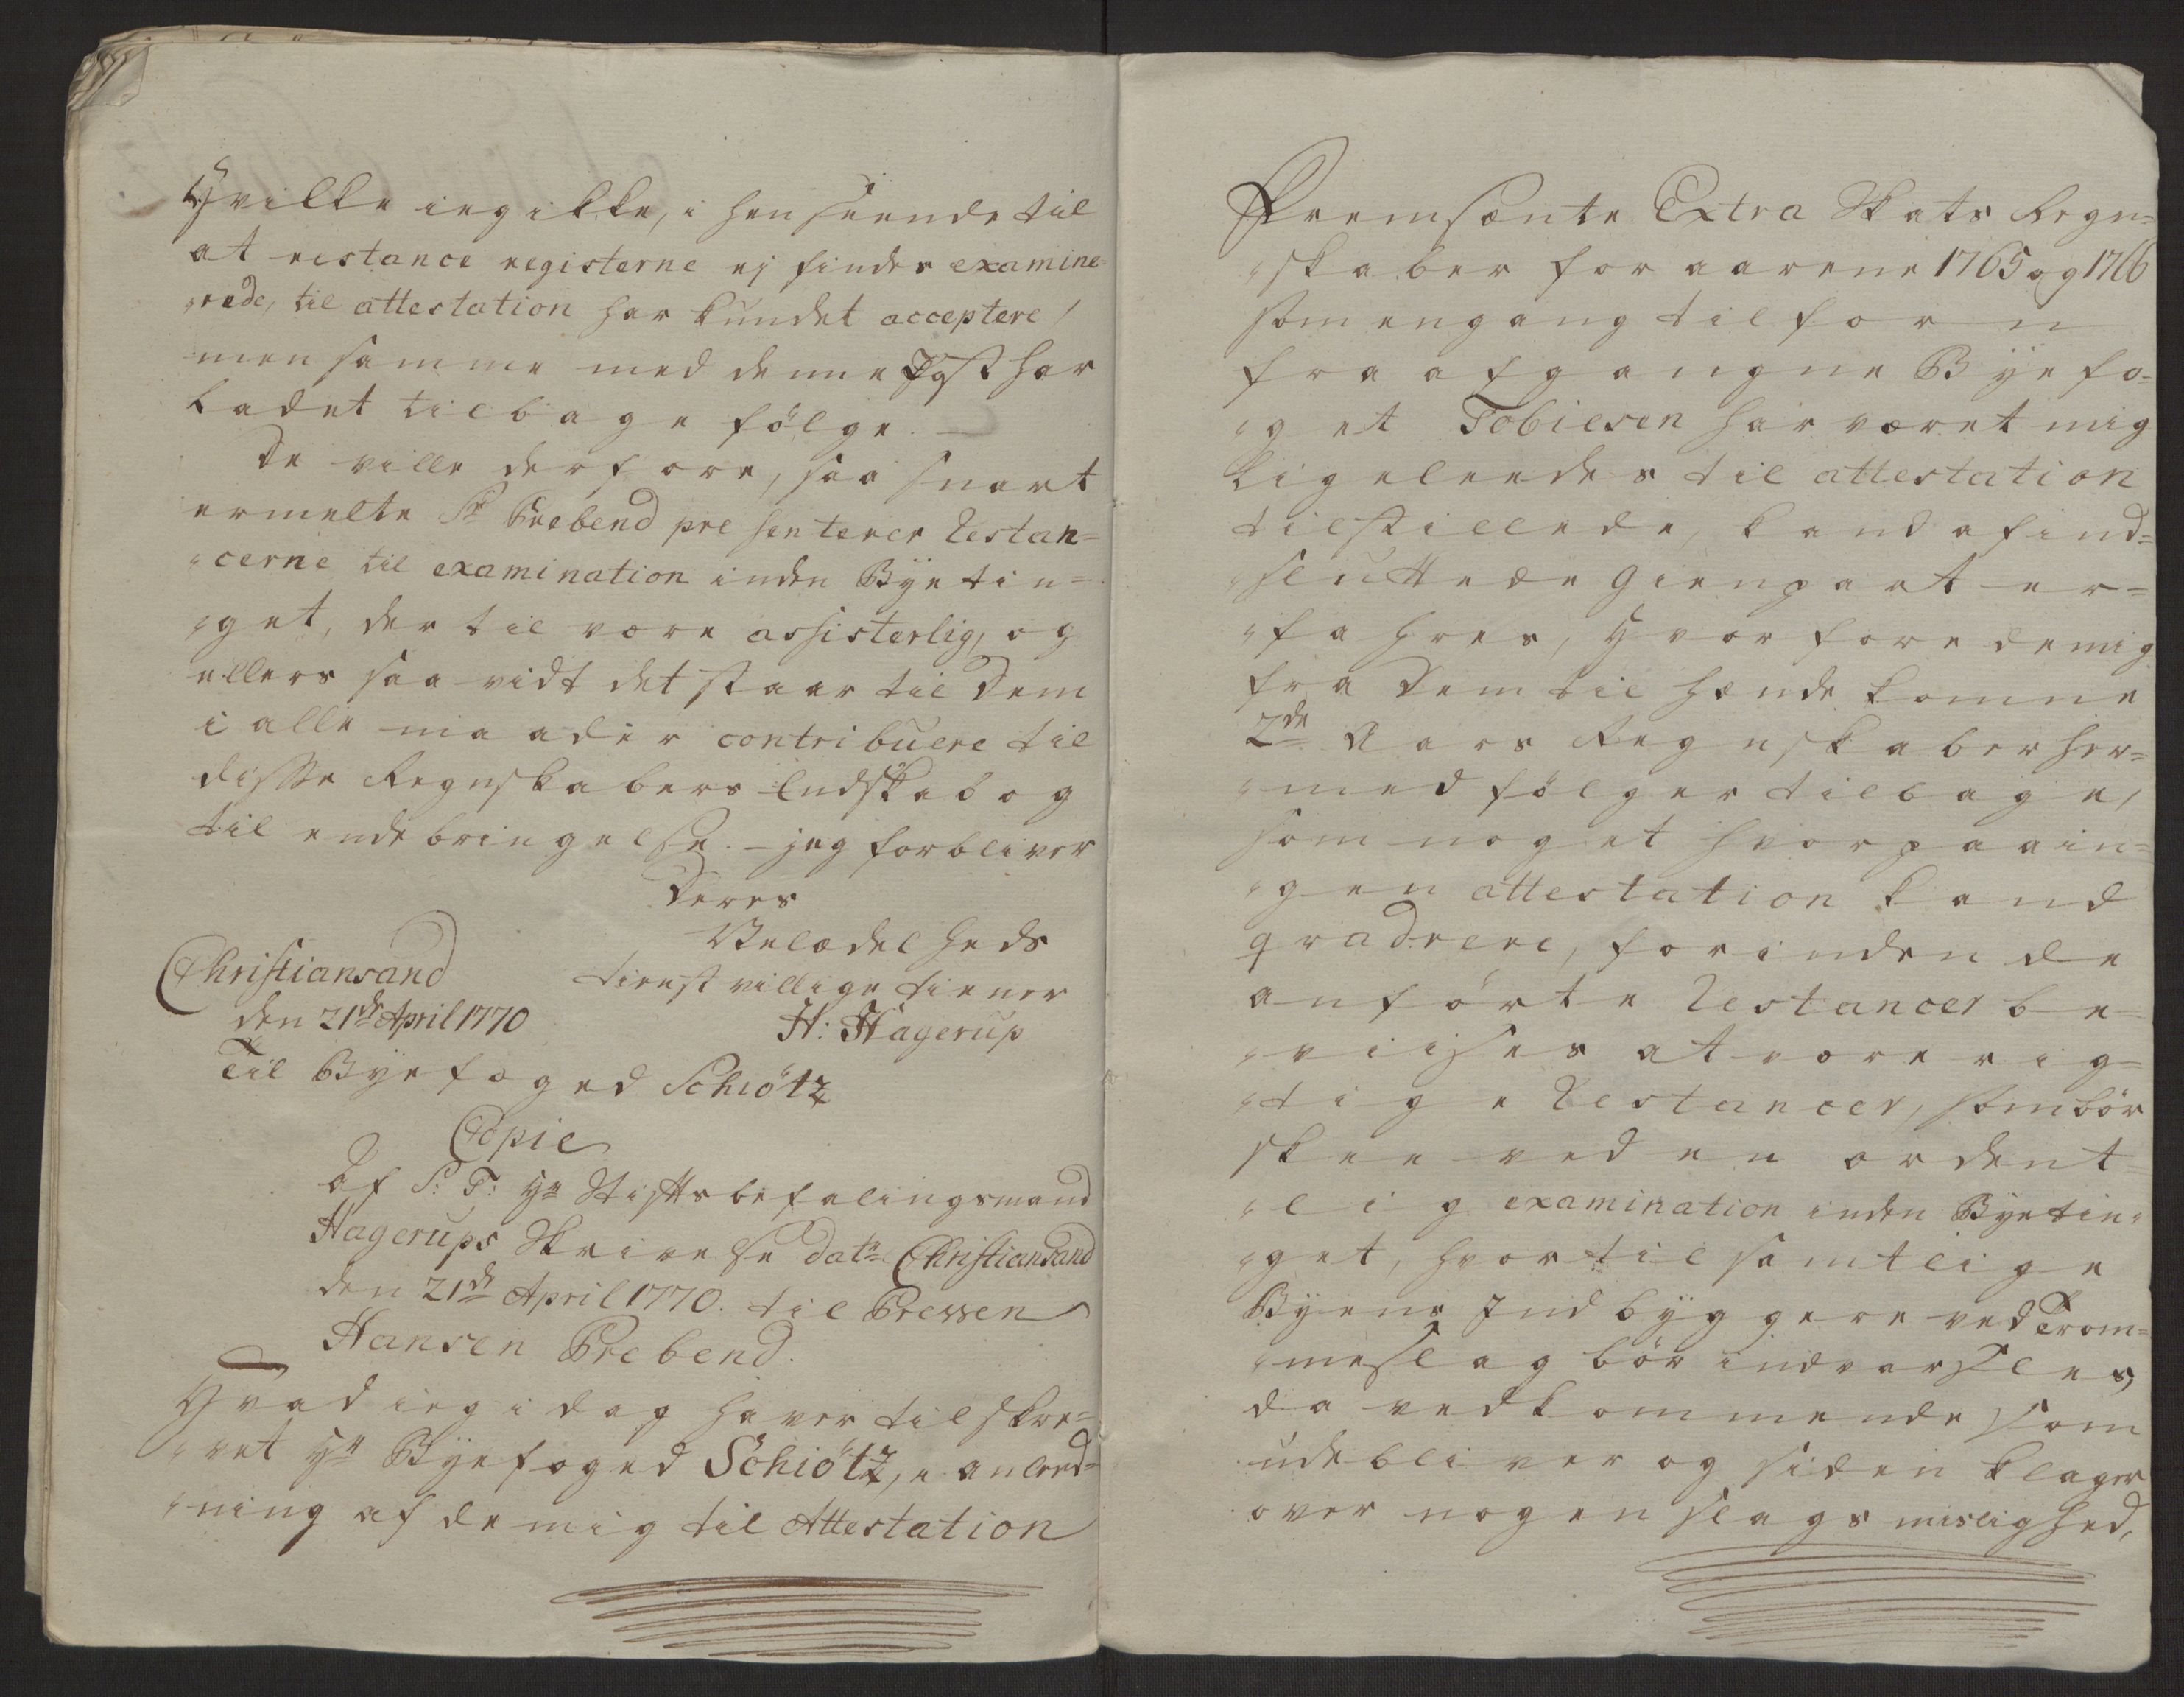 Hvilke ieg ikke, i henseende til
at restance registerne ej findes examine=
rede, til attestation har kundet acceptere,
men samme med denne Post har
ladet tilbage følge. —
De ville derfore, saa snart
ermelte Sr Prebend presenterer Restan=
cerne til examination inden Byetin=
get, der til være assisterlig, og
ellers saavidt det staar til Dem
i alle maader contribuere til
disse Regnskabers Endskab og
til endebringelse. – jeg forbliver
Deres
Velædelheds
Christiansand
tienstvillige tiener
den 21de April 1770
H: Hagerup
Til Byefoged Schiøtz
Copie
Af S: T: Hr Stiftsbefalingsmand
Hagerups Skrivelse dat: Christiansand
den 21de April 1770. til Pressen
Hansen Prebend.
Hvad ieg i dag haver tilskre=
vet Hr Byefoged Schiøtz, i anled=
ning af de mig til Attestation
Fremsænte Extra Skats Regn=
skaber for aarene 1765 og 1766
som engang tilforn
fra afgangne Byefo=
get Tobiesen har været mig
ligeleedes til attestation
tilstillede, kand af ind=
sluttede Gienpart er=
fahres, hvorfore de mig
fra Dem til hænde komne
2de Aars Regnskaber her=
med følger tilbage,
som noget hvorpaa in=
gen attestation kand
qradrere, forinden de
anførte Restancer be=
viises at være rig=
tige Restancer, som bør
skee ved en ordent=
lig examination inden Byetin=
get, hvortil samtlige
Byens Indbyggere ved Trom=
meslag bør indvarsles,
da vedkommende som
udebliver og siden klager
over nogen slags mislighed,